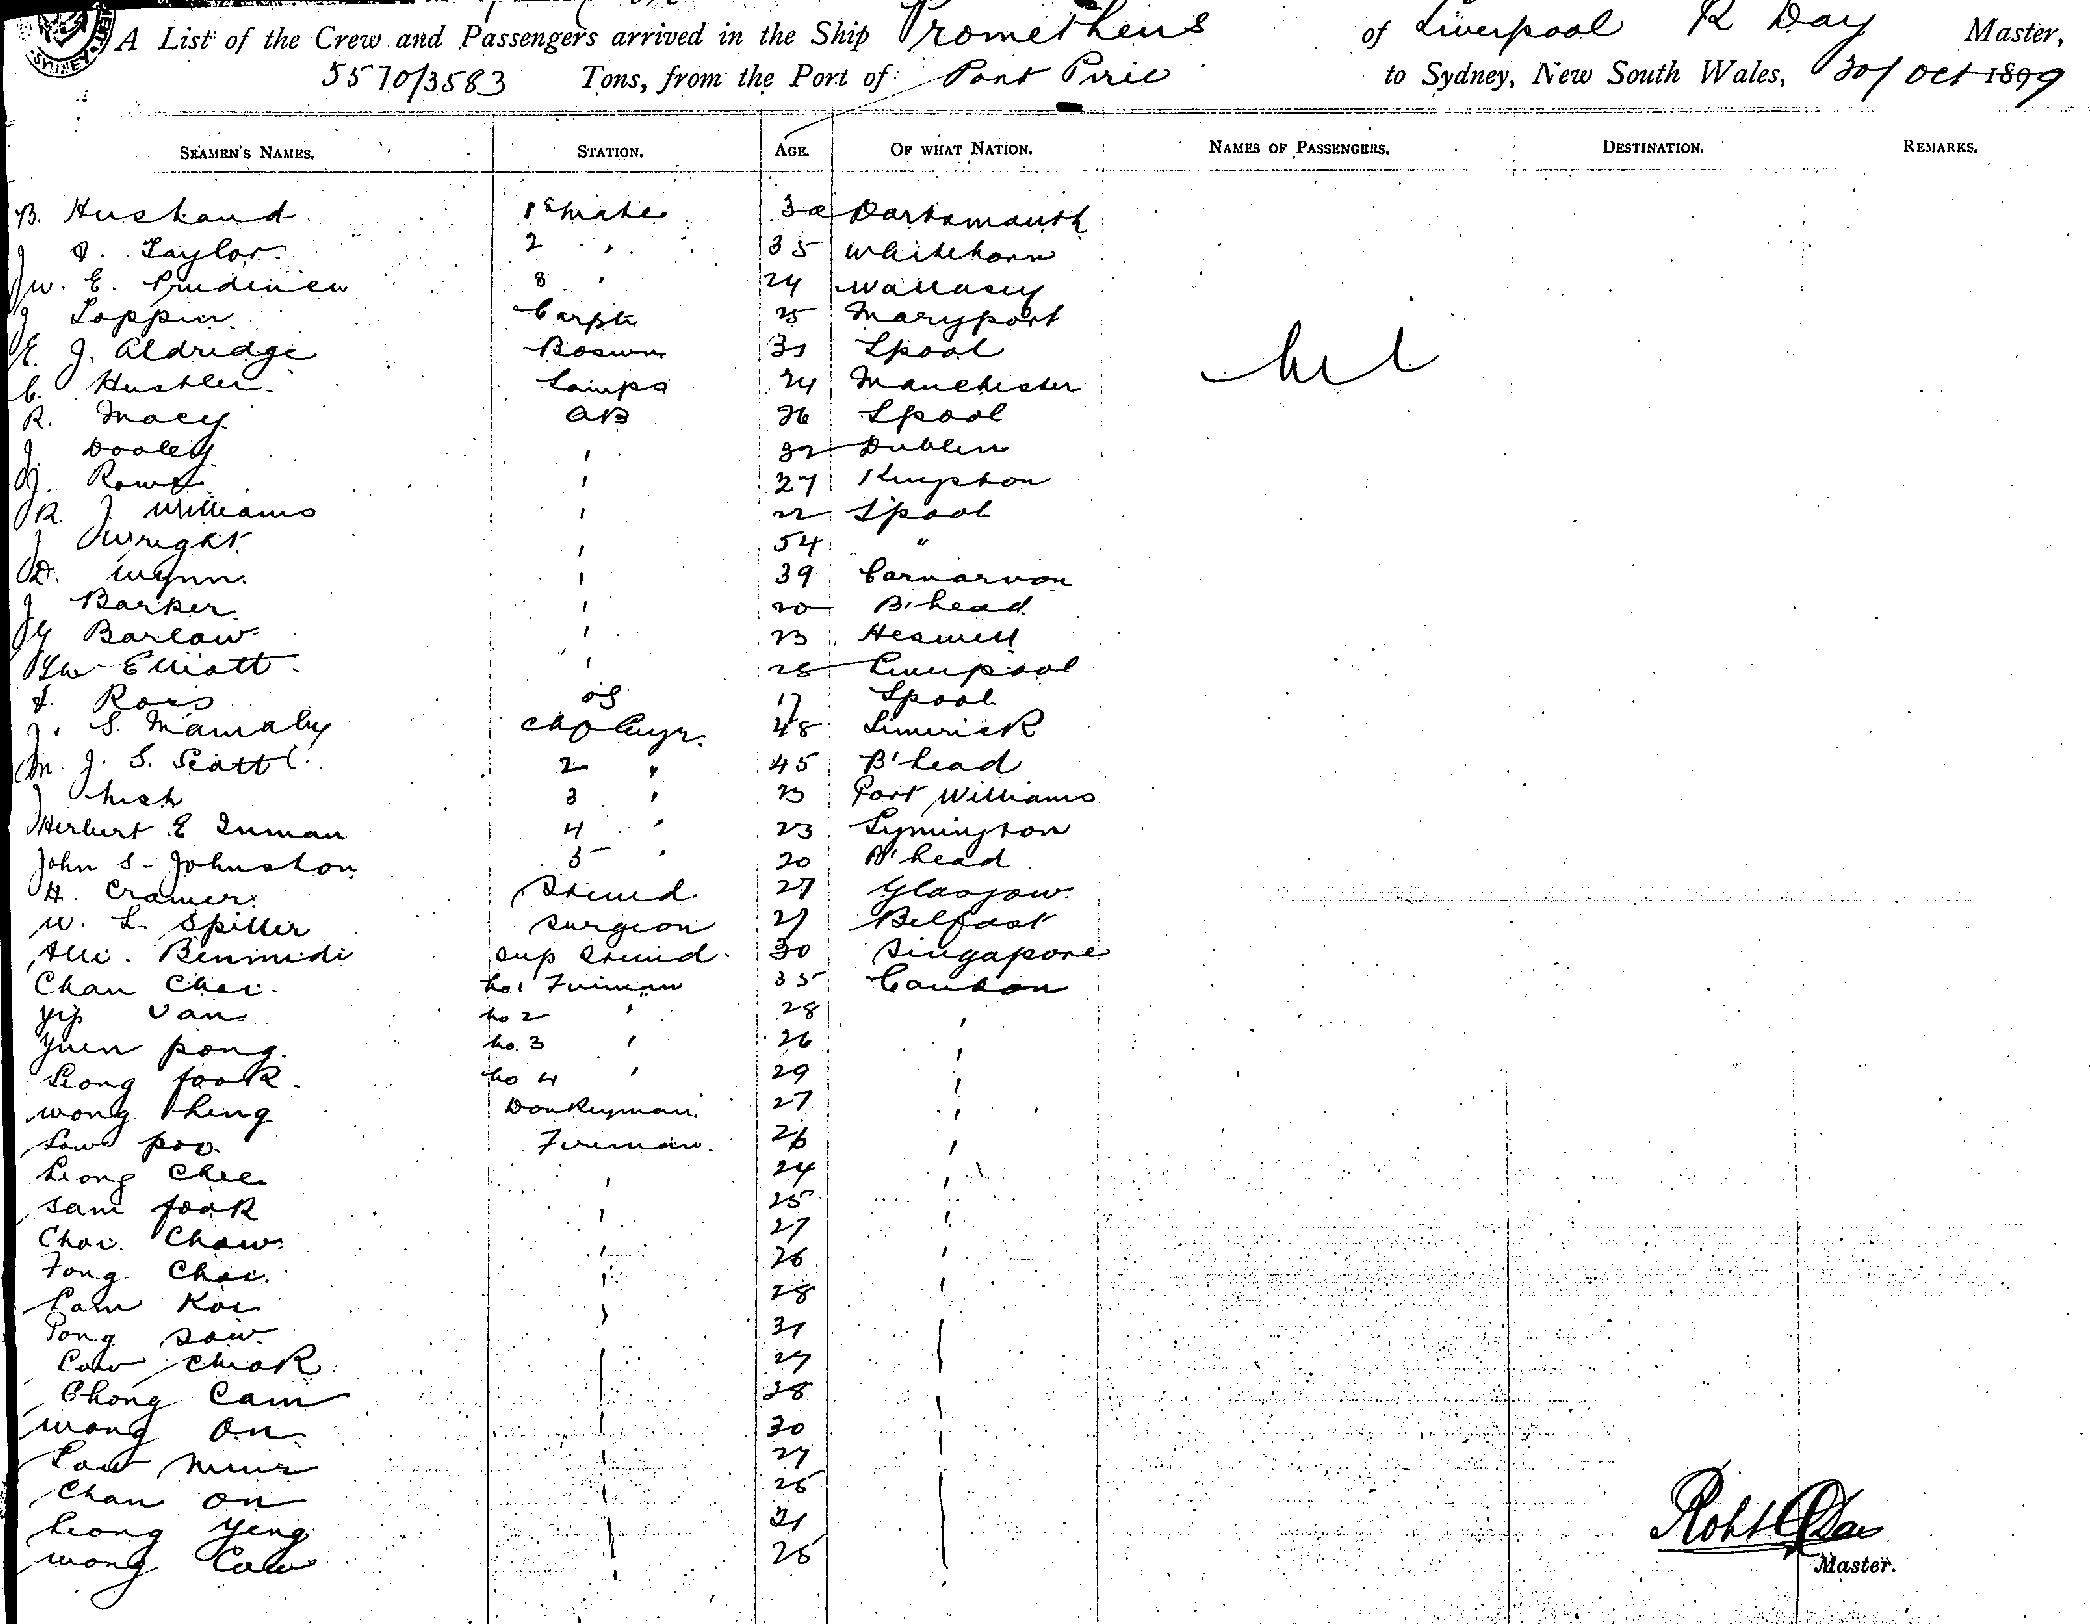 A List of the Crew and Passengers arrived in the Ship Prometheus of Liverpool R Day Master,
5570/3583 Tons, from the Port of Port Pirie to Sydney, New South Wales, 30/ Oct 1899
SEAMEN'S NAMES. STATION. AGE. OF WHAT NATION. NAMES OF PASSENGERS. DESTINATION. REMARKS.
B. Husband 1st mate Dartsmouth
Taylor 2 " 35 Whitehorn
W. E. 3 " 24 Wallasey
J Toppin Carptr 25 Maryport
E. J. Aldridge Boswn 31 Lpool
C. Hustler Lamps 24 Manchester
R. Macy AB 26 Lpool
J Dooley " 32 Dublin
J. Rowe " 27 Kingston
R. J Williams " 22 Lpool
J Wright " 54 "
D. Wynn " 39 Carnarvon
J Barker " 20 B'head
Barlow " 23 Heswell
Elliott " 28 Liverpool
Ross OS 17 Lpool
J. S. 48 Limerick
M. J. S. Scott 2 " 45 B'head
J 3 " 23 Port Williams
Herbert E Inman 4 " 23 Lymington
John S. Johnston 5 " 20 B'head
H. Cramer Steward 27 Glasgow
W. L. Spiller Surgeon 27 Belfast
Sup Steward 30 Singapore
Chan Choi No 1 Fireman 35 Canton
Yip Van No 2 " 28 "
Yuen pong No. 3 " 26 "
Leong fook No 4 " 29 "
Wong Donkeyman 27 "
Law poo Fireman 26 "
Leong Chee " 24 "
Sam fook " 25 "
Choi Chow " 27 "
Fong Choi " 26 "
Lam Koi " 28 "
Pong Sow " 31
Chiok 27
Chong Cam 28
Wong On 30
Law 27
Chan On 25
Leong Yeng 31
Wong 25
Nil
Robt Day
Master.